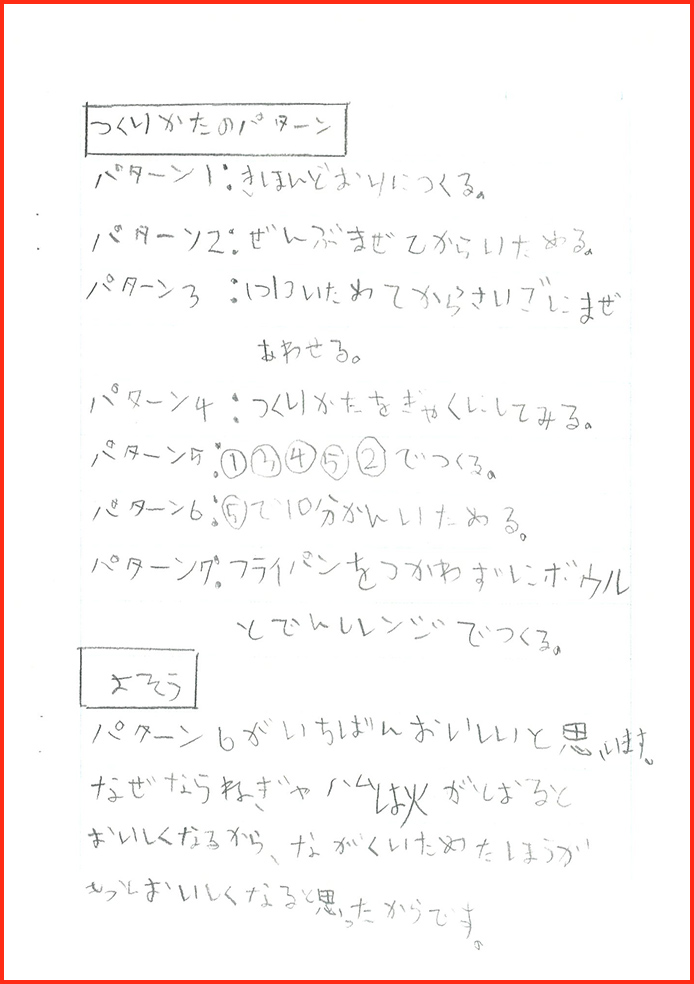 つくりかたのパターン
パターン1:きほんどおりにつくる。
パターン2:ぜんぶまぜてからいためる。
パターン3:1つ1ついためてからさいごにまぜ
あわせる。
パターン4:つくりかたをぎゃくにしてみる。
パターン5:①③④⑤②でつくる。
パターン6:⑤で10分かんいためる。
パターン7:フライパンをつかわずにボウル
とでんしレンジでつくる。
よそう
パターン6がいちばんおいしいと思います。
なぜならねぎやハムは火がとおると
おいしくなるから、ながくいためたほうが
もっとおいしくなると思ったからです。